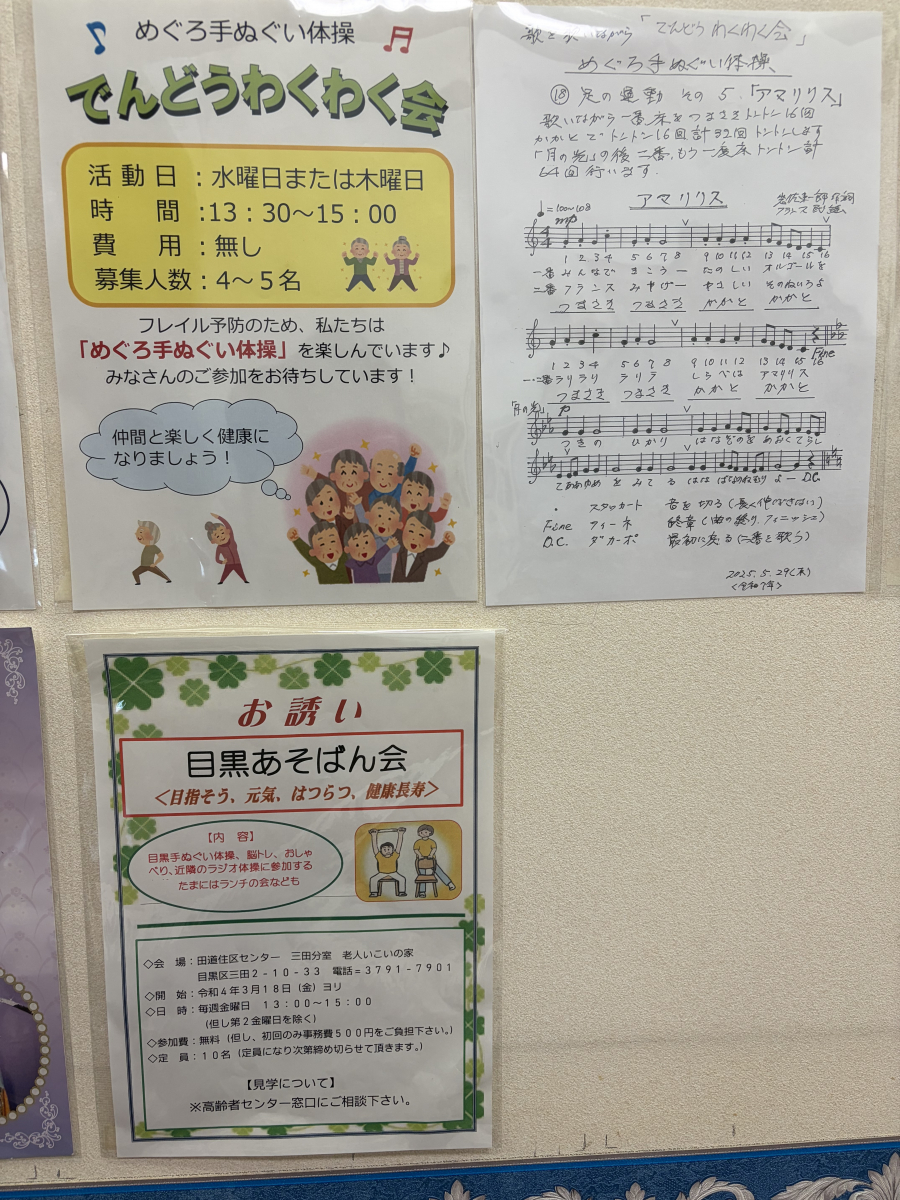 めぐろ手ぬぐい体操
でんどうわくわく会
活動日：水曜日または木曜日
時　間：13：30～15：00
費　用：無し
募集人数：4～5名
フレイル予防のため、私たちは
「めぐろ手ぬぐい体操」を楽しんでいます♪
みなさんのご参加をお待ちしています！
仲間と楽しく健康に
なりましょう！
歌を歌いながら「でんどうわくわく会」
めぐろ手ぬぐい体操
⑱ 足の運動 その5.「アマリリス」
歌いながら一番、床をつまさきトントン16回
かかとでトントン16回計32回トントンします
「月の光」の後二番、もう一度床トントン計
64回行います.
アマリリス
岩佐東一郎 作詞
フランス民謡
♩=100～108
mp
1 2 3 4 5 6 7 8 9 10 11 12 13 14 15 16
一番 みんなで きこうー たのしい オルゴールを
二番 フランス みやげー やさしい そのねいろよ
つまさき つまさき かかと かかと
Fine
1 2 3 4 5 6 7 8 9 10 11 12 13 14 15 16
一・二番 ラリラリ ラリラ しらべは アマリリス
つまさき つまさき かかと かかと
「月の光」 P
つきの ひかり はなぞのを あおくてらし
てああゆめをみてる はなばなのねむりよー D.C.
・ スタッカート 音を切る(長く伸ばさない)
Fine フィーネ 終章(曲の終り.フィニッシュ)
D.C. ダカーポ 最初に戻る(二番を歌う)
2025.5.29(木)
<令和7年>
お誘い
目黒あそばん会
＜目指そう、元気、はつらつ、健康長寿＞
【内　容】
目黒手ぬぐい体操、脳トレ、おしゃ
べり、近隣のラジオ体操に参加する
たまにはランチの会なども
◇会　場：田道住区センター　三田分室　老人いこいの家
目黒区三田2-10-33　電話=3791-7901
◇開　始：令和4年3月18日（金）ヨリ
◇日　時：毎週金曜日　13：00～15：00
（但し第2金曜日を除く）
◇参加費：無料（但し、初回のみ事務費500円をご負担下さい。）
◇定　員：10名（定員になり次第締め切らせて頂きます。）
【見学について】
※高齢者センター窓口にご相談下さい。